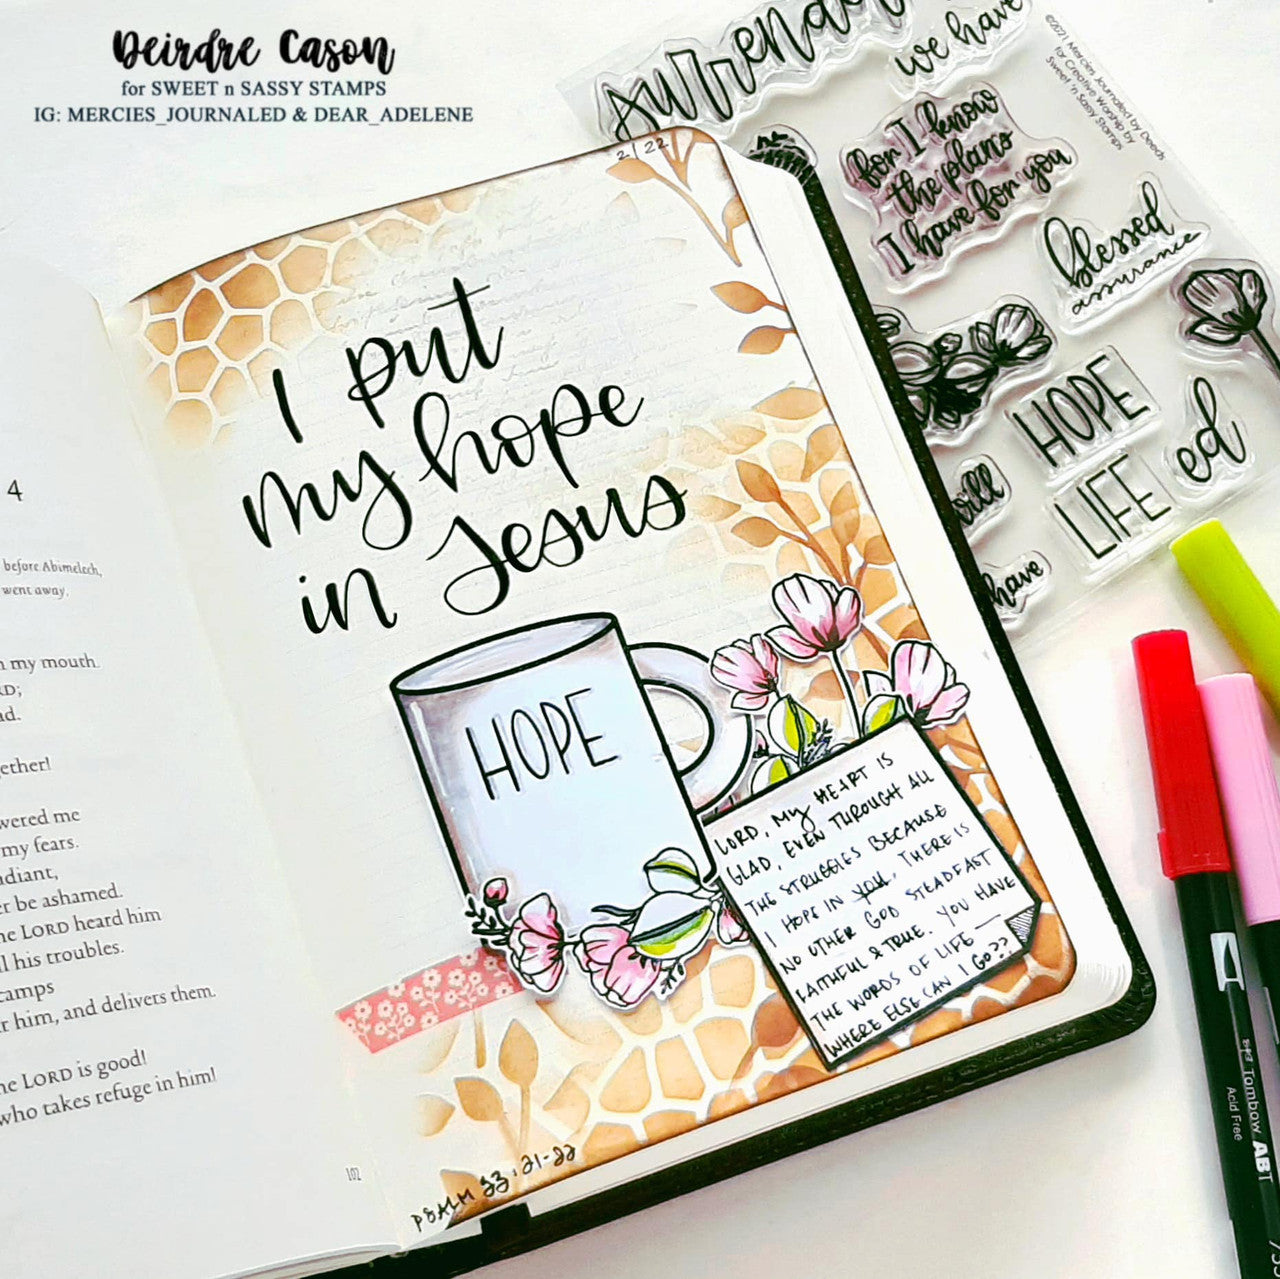 Deirdre Cason
for SWEET n SASSY STAMPS
IG: MERCIES_JOURNALED & DEAR_ADELENE
2/22
I put
my hope
in Jesus
HOPE
LORD, MY HEART IS
GLAD, EVEN THROUGH ALL
THE STRUGGLES BECAUSE
I HOPE IN YOU. THERE IS
NO OTHER GOD STEADFAST
FAITHFUL & TRUE. YOU HAVE
THE WORDS OF LIFE —
WHERE ELSE CAN I GO??
PSALM 33:21-22
4
before Abimelech,
went away.
my mouth.
ether!
wered me
my fears.
diant,
er be ashamed.
he LORD heard him
ll his troubles.
camps
r him, and delivers them.
he LORD is good!
who takes refuge in him!
102
we have
for I know
the plans
I have for you
blessed
assurance
HOPE
LIFE
ed
will
have
©2021 Mercies Journaled by Deeds
for Creative Worship by
Sweet 'n Sassy Stamps
Tombow ABT
Acid Free